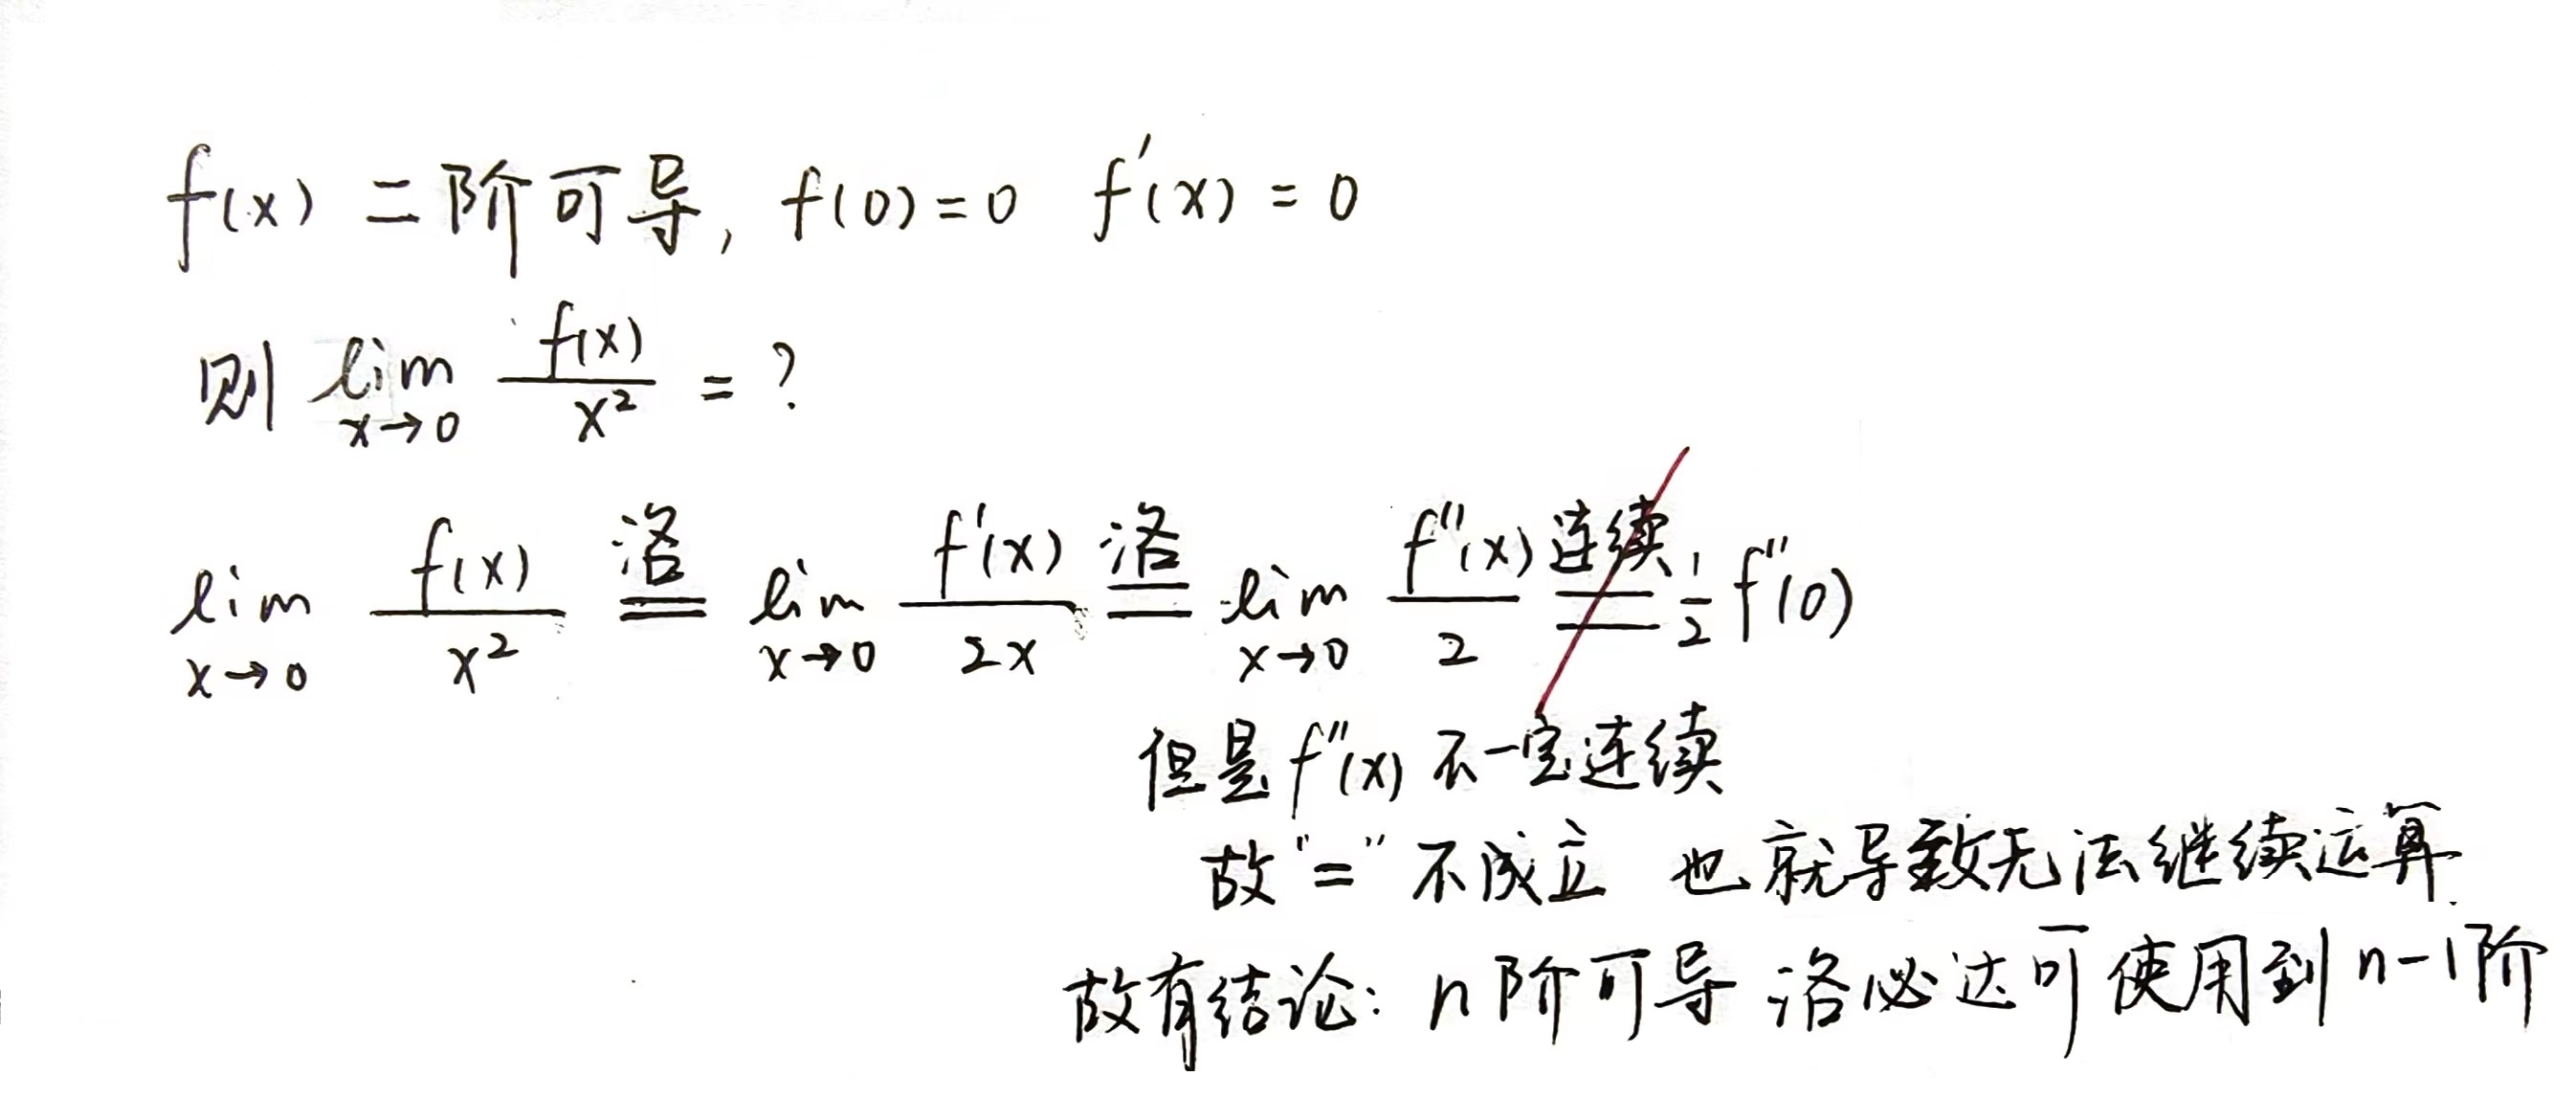 f(x) 二阶可导, f(0)=0 f'(x)=0
则 lim x→0 f(x)/x² = ?
lim x→0 f(x)/x² 洛= lim x→0 f'(x)/2x 洛= lim x→0 f''(x)/2 连续= 1/2 f''(0)
但是f''(x)不一定连续
故"="不成立 也就导致无法继续运算.
故有结论: n阶可导 洛必达可使用到n-1阶